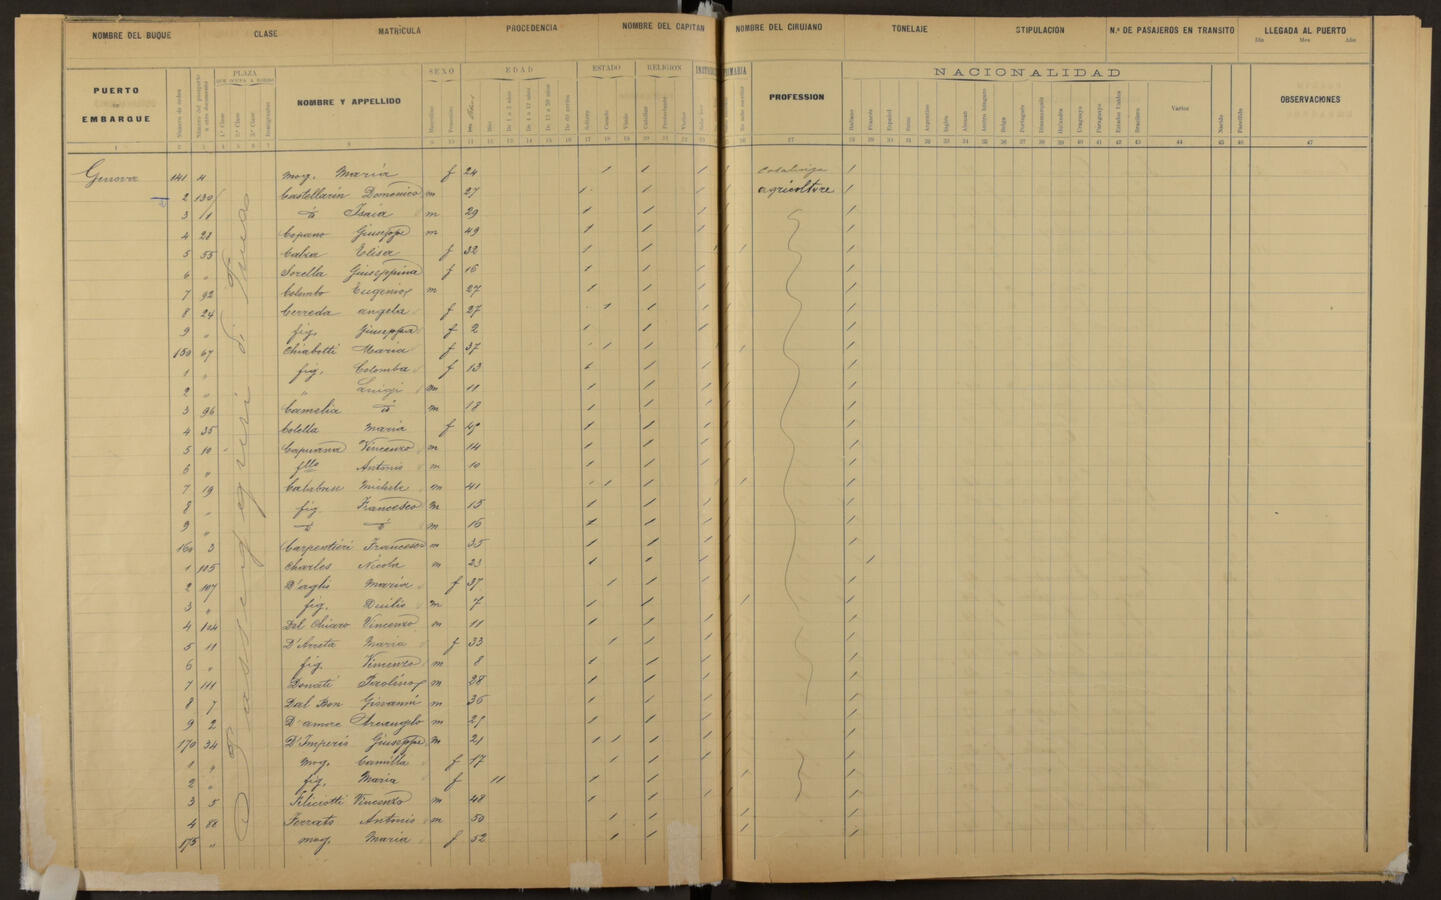 NOMBRE DEL BUQUE CLASE MATRÍCULA PROCEDENCIA NOMBRE DEL CAPITAN NOMBRE DEL CIRUJANO TONELAJE STIPULACION N.º DE PASAJEROS EN TRANSITO LLEGADA AL PUERTO
Dia Mes Año
PUERTO DE EMBARQUE
Número de orden
PLAZA QUE OCUPA A BORDO
1.ª Clase 2.ª Clase 3.ª Clase
NOMBRE Y APPELLIDO
SEXO
Masculino Femenino
EDAD
De 1 a 2 años
ESTADO
Soltero Casado Viudo
RELIGION
Católico Protestante Varios
PROFESSION
NACIONALIDAD
Italiano Francés Español Suizo Argentino Inglés Aleman Austro húngaro Belga Portugués Dinamarqués Holandés Uruguayo Paraguayo Estados Unidos Brasilero Varios
Nacido Fallecido
OBSERVACIONES
Passeggieri di Terza
Genova 141 4 mog. Maria f 24 casalinga
2 130 Castellarin Domenico m 27 agricoltore
3 1 d° Isaia m 29
4 28 Copano Giuseppe m 49
5 55 Calza Elisa f 32
6 " Sorella Giuseppina f 16
7 92 Colombo Eugenio m 27
8 24 Cerreda angela f 27
9 " fig. Giuseppa f 2
150 67 Chiabotti Maria f 37
1 " fig. Colomba f 13
2 " " Luigi m 11
3 96 Camelia d° m 18
4 35 Colella Maria f 49
5 10 Capuana Vincenzo m 14
6 " fllo Antonio m 10
7 19 Calabrese Michele m 41
8 " fig Francesco m 15
9 " d° d° m 16
160 3 Carpentieri Francesco m 35
1 105 Charles Nicola m 23
2 107 D'aglio Maria f 37
3 " fig. Duilio m 7
4 124 Del Chiaro Vincenzo m 11
5 11 D'Arreta Maria f 33
6 " fig. Vincenzo m 8
7 111 Donati Paolino m 28
8 7 Dal Bon Giovanni m 36
9 2 D'amore Arcangelo m 29
170 34 D'Imperio Giuseppe m 21
1 " mog. Camilla f 17
2 " fig. Maria f 11
3 5 Feliciotti Vincenzo m 48
4 88 Ferrato Antonio m 50
175 " mog. Maria f 52